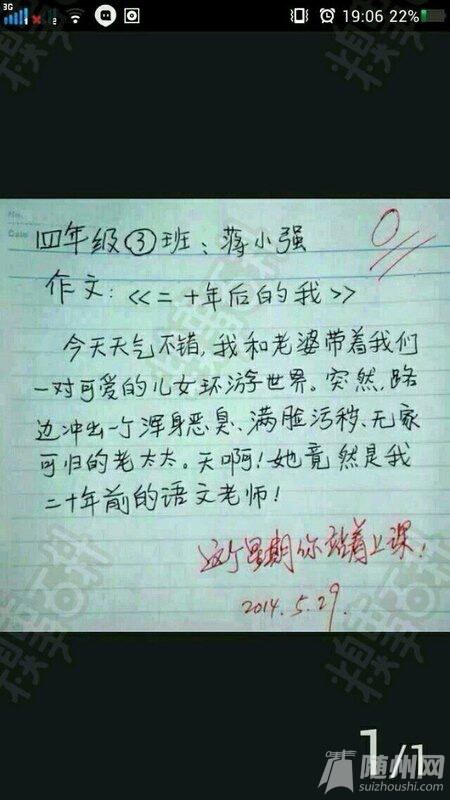 3G
1 2 3 19:06 22%
No.
Date
四年级③班、蒋小强
0
作文：《二十年后的我》
今天天气不错，我和老婆带着我们
一对可爱的儿女环游世界。突然，路
边冲出一个浑身恶臭、满脸污秽、无家
可归的老太太。天啊！她竟然是我
二十年前的语文老师！
这个星期你站着上课！
2014.5.29.
1/1
随州网
suizhoushi.com